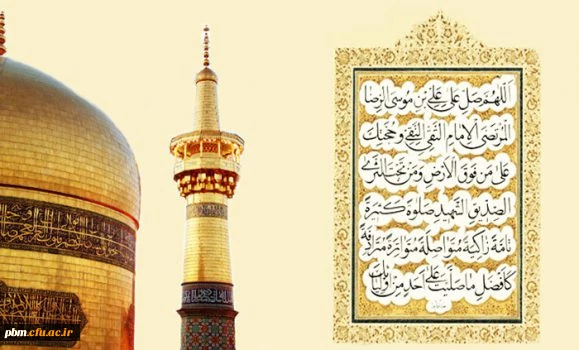 اَللّهُمَّ صَلِّ عَلى عَلِيِّ بْنِ مُوسَى الرِّضَا
الْمُرْتَضَى الْاِمامِ التَّقِيِّ النَّقِيِّ وَحُجَّتِكَ
عَلى مَنْ فَوْقَ الْاَرْضِ وَمَنْ تَحْتَ الثَّرى
الصِّدّيقِ الشَّهيدِ صَلوةً كَثيرَةً
تامَّةً زاكِيَةً مُتَواصِلَةً مُتَواتِرَةً مُتَرادِفَةً
كَاَفْضَلِ ما صَلَّيْتَ عَلى اَحَدٍ مِنْ اَوْلِيائِكَ
pbm.cfu.ac.ir